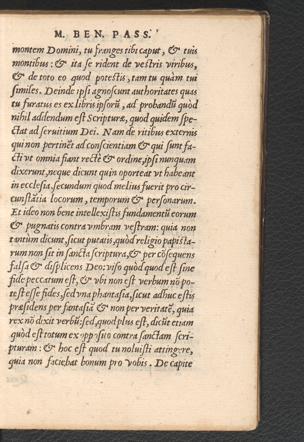 M. BEN. PASS.
montem Domini, tu franges tibi caput, & tuis
montibus: & ita se rident de vestris viribus,
& de toto eo quod potestis, tam tu quàm tui
similes. Deinde ipsi agnoscunt authoritates quas
tu furatus es ex libris ipsorū, ad probandū quòd
nihil addendum est Scripturæ, quod quidem spe-
ctat ad seruitium Dei. Nam de ritibus externis
qui non pertinēt ad conscientiam & qui sunt fa-
cti vt omnia fiant rectè & ordine, ipsi nunquam
dixerunt, neque dicunt quin oporteat vt habeant
in ecclesia, secundum quod melius fuerit pro cir-
cunstātia locorum, temporum & personarum.
Et ideo non bene intellexistis fundamentū eorum
& pugnatis contra vmbram vestram: quia non
tantùm dicunt, sicut putatis, quòd religio papista-
rum non sit in sancta scriptura, & per cōsequens
falsa & displicens Deo: viso quòd quod est sine
fide peccatum est, & vbi non est verbum nō po-
test esse fides, sed vna phantasia, sicut adhuc estis
præsidens per fantasiā & non per veritatē, quia
rex nō dixit verbū: sed, quod plus est, dicūt etiam
quòd est totum ex opposito contra sanctam scri-
pturam: & hoc est quod tu noluisti attingere,
quia non faciebat bonum pro vobis. De capite